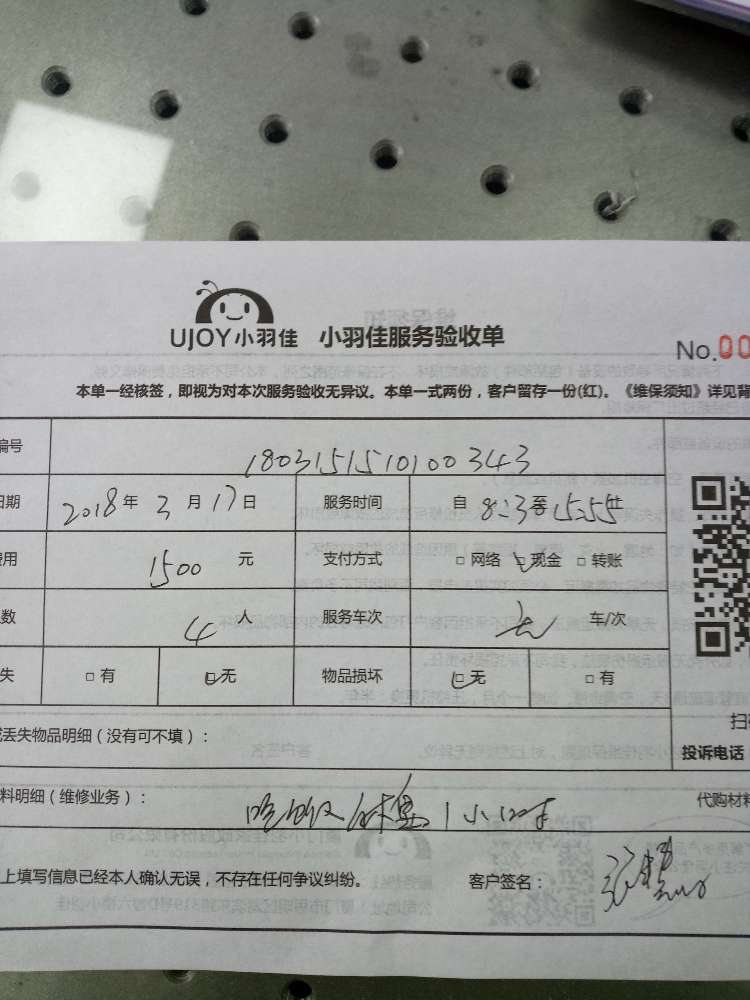 UJOY小羽佳 小羽佳服务验收单
No.00
本单一经核签，即视为对本次服务验收无异议。本单一式两份，客户留存一份(红)。《维保须知》详见背
编号 1803151510100343
日期 2018年 3月17日 服务时间 自 8:30至15:55
费用 1500元 支付方式 □网络 □现金 □转账
数 4人 服务车次 车/次
失 □有 □无 物品损坏 □无 □有
丢失物品明细（没有可不填）：
投诉电话
料明细（维修业务）： 吃饭休息1小时
代购材料
上填写信息已经本人确认无误，不存在任何争议纠纷。 客户签名：